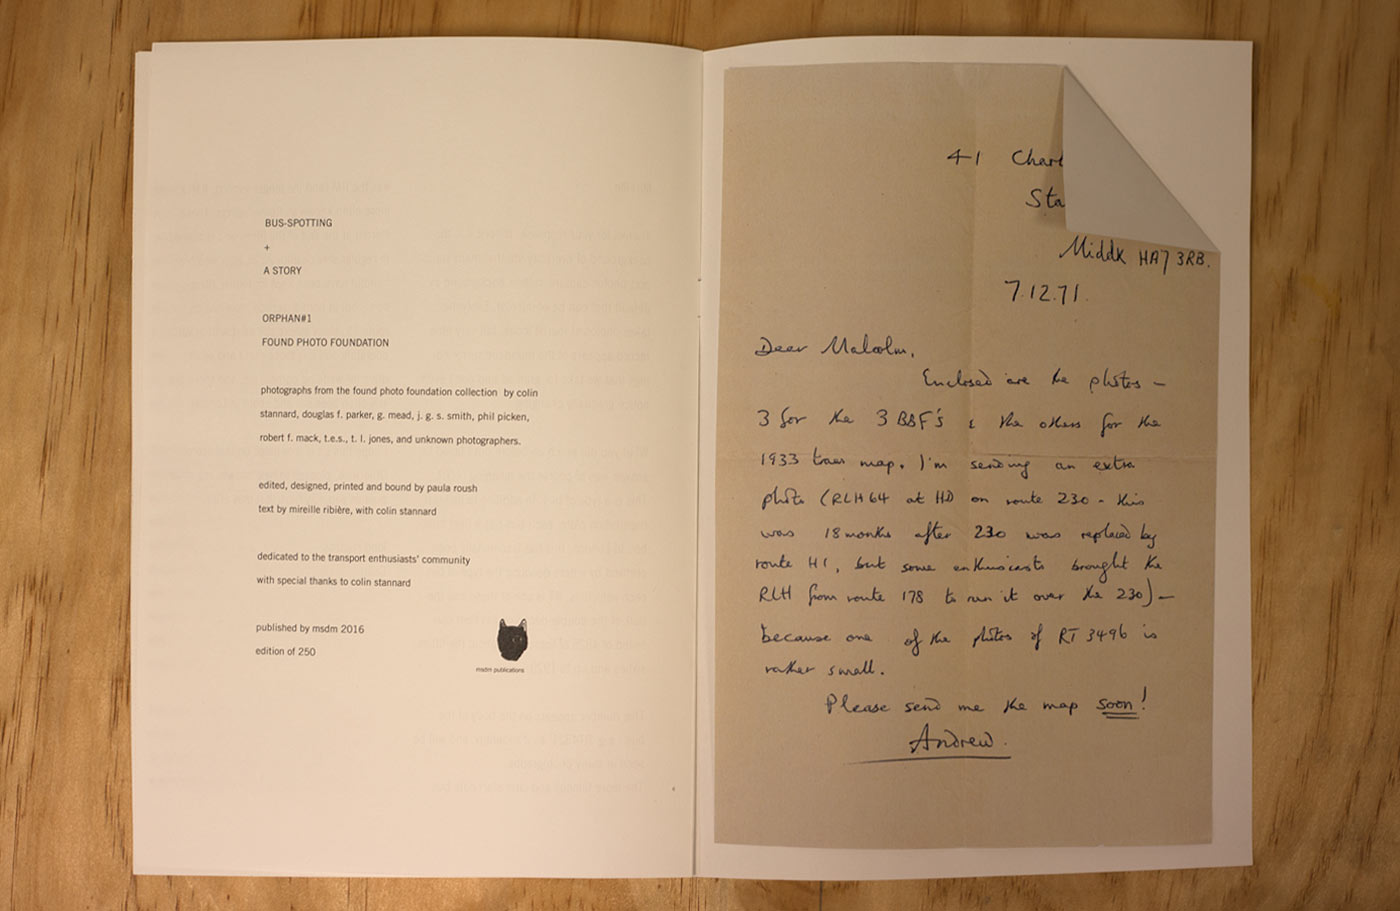 BUS-SPOTTING
+
A STORY
ORPHAN#1
FOUND PHOTO FOUNDATION
photographs from the found photo foundation collection by colin
stannard, douglas f. parker, g. mead, j. g. s. smith, phil picken,
robert f. mack, t.e.s., t. l. jones, and unknown photographers.
edited, designed, printed and bound by paula roush
text by mireille ribière, with colin stannard
dedicated to the transport enthusiasts' community
with special thanks to colin stannard
published by msdm 2016
edition of 250
msdm publications
41 Chart
Sta
Middx HA7 3RB.
7.12.71.
Dear Malcolm,
Enclosed are the photos -
3 for the 3 BBF's & the others for the
1933 tram map. I'm sending an extra
photo (RLH64 at HD on route 230 - this
was 18 months after 230 was replaced by
route H1, but some enthusiasts brought the
RLH from route 178 to run it over the 230) -
because one of the photos of RT 3496 is
rather small.
Please send me the map soon!
Andrew.